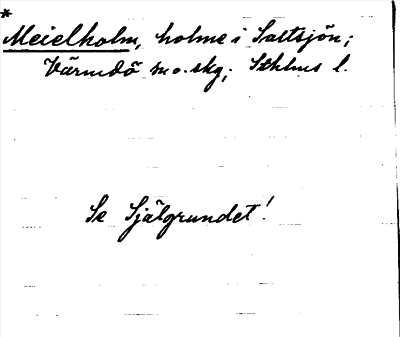 *
Meielholm, holme i Saltsjön;
Värmdö sn o. skg; Sthlms l.
Se Själgrundet!